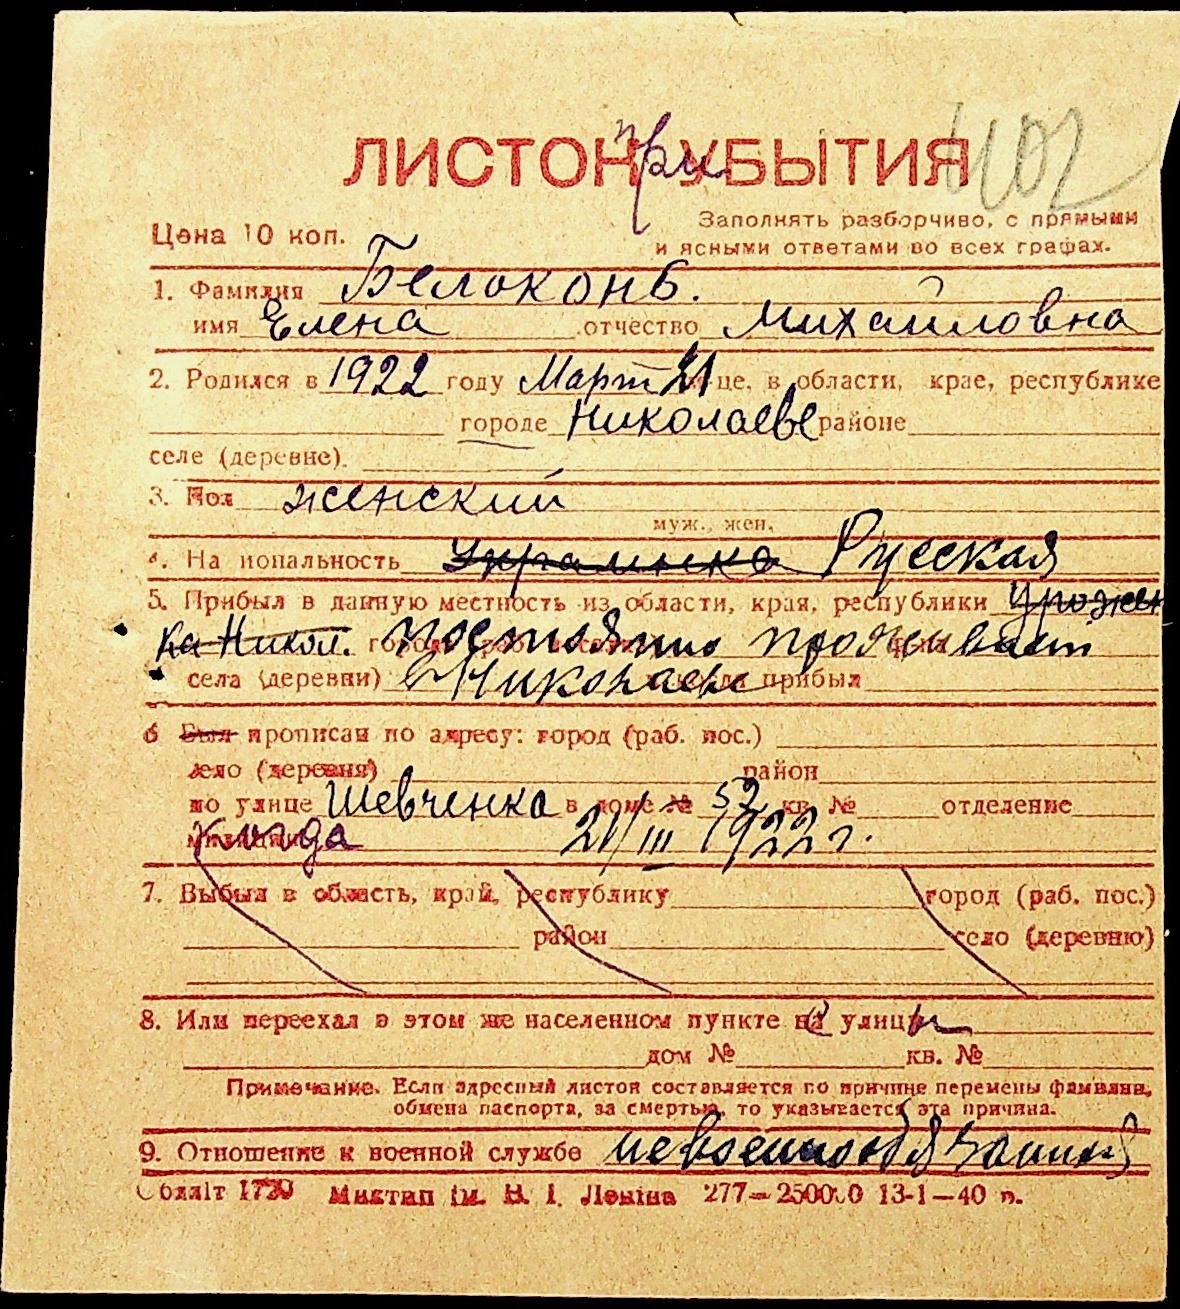 ЛИСТОК при УБЫТИЯ 402
Цена 10 коп.
Заполнять разборчиво, с прямыми
и ясными ответами во всех графах.
1. Фамилия Белоконь.
имя Елена отчество Михайловна
2. Родился в 1922 году Март 21 це, в области, крае, республике
городе Николаеве районе
селе (деревне)
3. Пол женский
муж., жен.
4. На иональность Украинка Русская
5. Прибыл в данную местность из области, края, республики урожен
ка Никол. города постоянно проживает
села (деревни) в Николаеве прибыл
6 Был прописан по адресу: город (раб. пос.)
село (деревня) район
по улице Шевченко в доме № 52 кв. № отделение
милиции когда 21/III 1922 г.
7. Выбыл в область, край, республику город (раб. пос.)
район село (деревню)
8. Или переехал в этом же населенном пункте на улицы
дом № кв. №
Примечание. Если адресный листок составляется по причине перемены фамилии,
обмена паспорта, за смертью, то указывается эта причина.
9. Отношение к военной службе невоеннообязанная
Обліт 1739 Миктип ім. В. І. Леніна 277—250000 13-1—40 п.